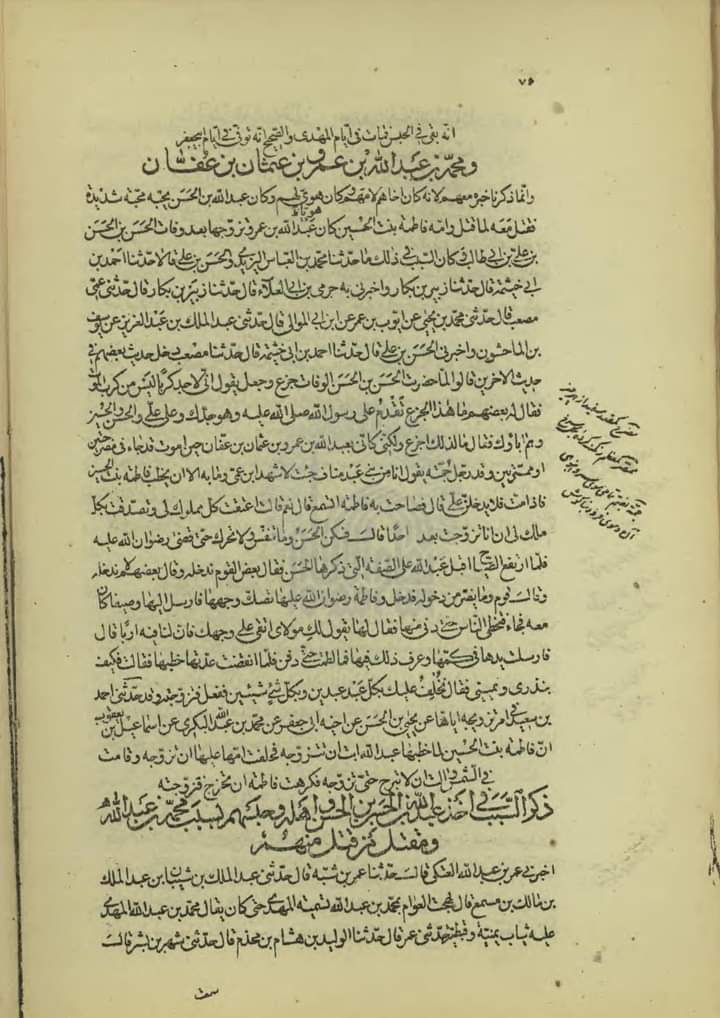 ٧۶
انه بقى في الحبس فمات في ايام المهدي والصحيح انه توفي في ايام ابيجعفر
ومحمد بن عبد الله بن عمرو بن عثمان بن عفان
وانما ذكرنا خبره معهم لانه كان اخاهم لامهم وكان هوى لهم وكان عبد الله بن الحسن يحبه محبة شديدة
فقتل معه لما قتل وامه فاطمة بنت الحسين كان عبد الله بن عمرو تزوجها بعد وفات الحسن بن الحسن
بن علي بن ابي طالب وكان السبب في ذلك ما حدثنا محمد بن العباس اليزيدي والحسن بن علي قالا حدثنا احمد بن
ابي خيثمة قال حدثنا زبير بن بكار واخبرني به حرمي بن ابي العلاء قال حدثنا زبير بن بكار قال حدثني عمي
مصعب قال حدثني محمد بن يحيى عن ايوب بن عمر عن ابن ابي الموالي قال حدثني عبد الملك بن عبد العزيز عن يوسف
بن الماجشون واخبرني الحسن بن علي قال حدثنا احمد بن ابي خيثمة قال حدثنا مصعب دخل حديث بعضهم في
حديث الاخرين قالوا لما حضرت الحسن بن الحسن الوفات جزع وجعل يقول اني لاجد كربا ليس من كرب الموت
فقال له بعضهم ما هذا الجزع تقدم على رسول الله صلى الله عليه وهو جدك وعلى علي والحسن والحسين
وهم اباؤك فقال ما لذلك اجزع ولكني كاني بعبد الله بن عمرو بن عثمان بن عفان حين اموت قد جاء في مضرجتين
او ممصرتين وقد رجل جمته يقول انا من بني عبد مناف جئت لاشهد ابن عمي وما به الا ان يخطب فاطمة بنت الحسين
فاذا مت فلا يدخلن علي قال فصاحت به فاطمة اتسمع قال نعم قالت اعتقت كل مملوك لي وتصدقت بكل
ملك لي ان انا تزوجت بعدك احدا قالت فسكن الحسن وما تنفس ولا تحرك حتى قضى رضوان الله عليه
فلما ارتفع الصياح اقبل عبد الله على الصفة التي ذكرها الحسن فقال بعض القوم ندخله وقال بعضهم لا ندخله
وقالت قوم وما يضر من دخوله فدخل وفاطمة رضوان الله عليها تصك وجهها فارسل اليها وصيفا كان
معه فجاء فتخطى الناس حتى دنى منها فقال لها يقول لك مولاي اتقي على وجهك فان لنا فيه اربا قال
فارسلت يدها في كمها وعرف ذلك فيها فما لطمت حتى دفن فلما انقضت عدتها خطبها فقالت فكيف
بنذري ويميني فقال نخلف عليك بكل عبد عبدين وبكل شيء شيئين ففعل فتزوجته وقد حدثني احمد
بن سعيد في امر تزويجه اياها عن يحيى بن الحسن عن اخيه ابي جعفر عن محمد بن عبد الله البكري عن اسماعيل بن يعقوب
ان فاطمة بنت الحسين لما خطبها عبد الله ابت ان تتزوجه فحلفت امها عليها ان تزوجه وقامت
في الشمس والت ان لا تبرح حتى تزوجه فكرهت فاطمة ان تخرج فتزوجته
ذكر السبب في اخذ عبد الله بن الحسن بن الحسن واهله وحبسهم بسبب محمد بن عبد الله
ومقتل من قتل منهم
اخبرني عمر بن عبد الله العتكي قالت حدثنا عمر بن شبه قال حدثني عبد الملك بن شيبان بن عبد الملك
بن مالك بن مسمع قال لهجت العوام بمحمد بن عبد الله تسميه المهدي حتى كان يقال محمد بن عبد الله المهدي
عليه ثياب يمنية وقبطية حدثني عمر قال حدثنا الوليد بن هشام بن محذم قال حدثني سهر بن بشر قالت